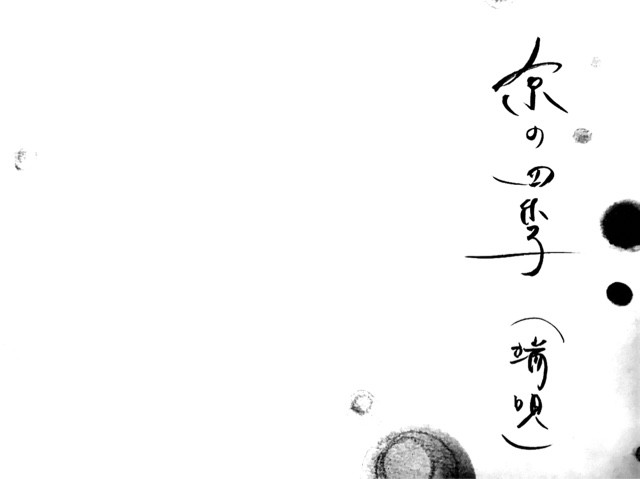 京の四季
(端唄)